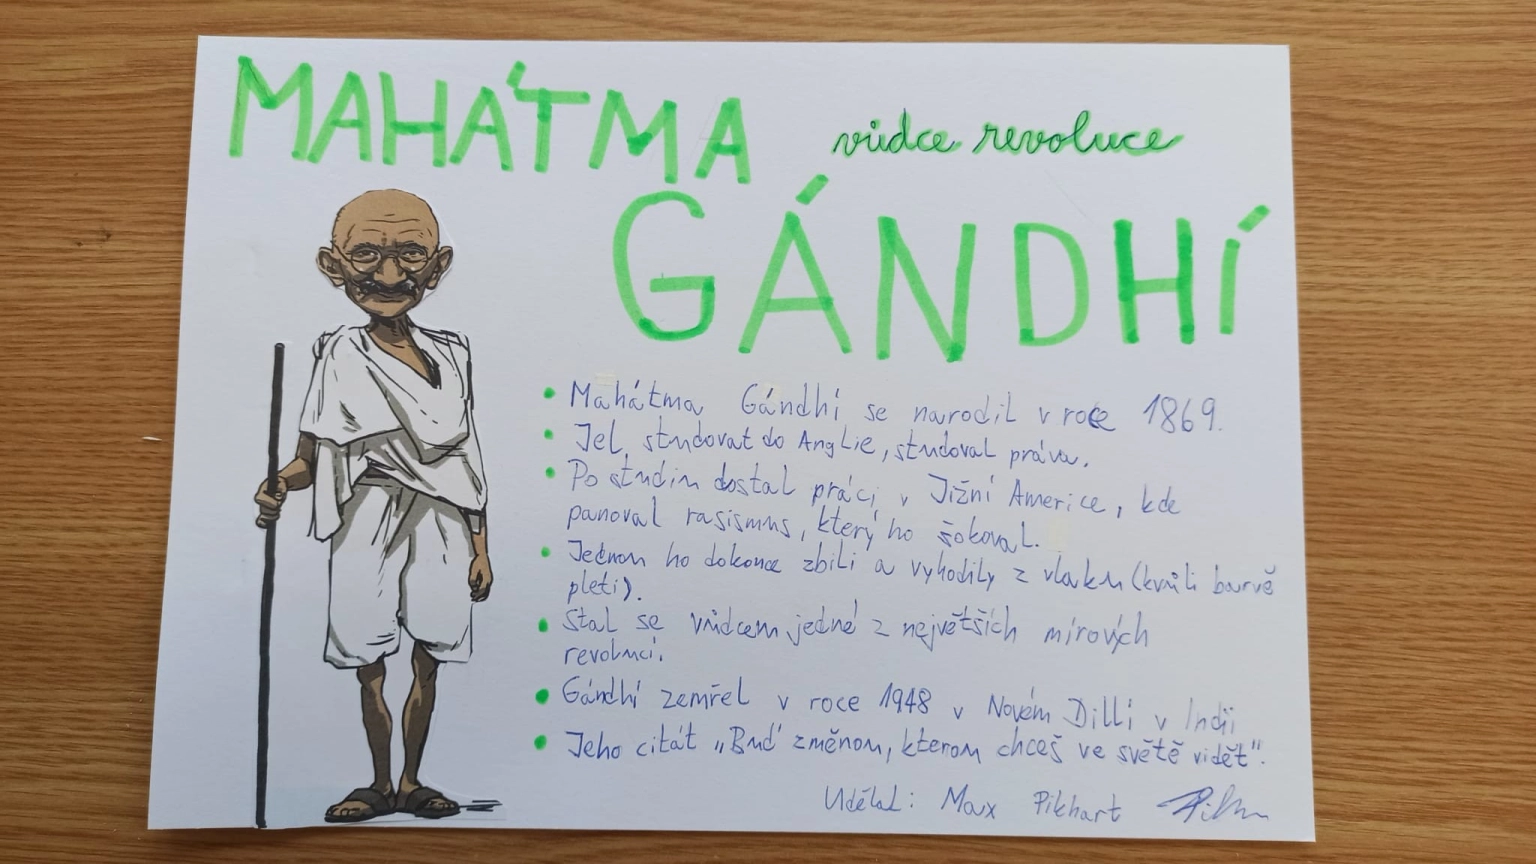 MAHÁTMA
vůdce revoluce
GÁNDHÍ
• Mahátma Gándhí se narodil v roce 1869.
• Jel studovat do Anglie, studoval práva.
• Po studiu dostal práci v Jižní Americe, kde
panoval rasismus, který ho šokoval.
• Jednou ho dokonce zbili a vyhodily z vlaku (kvůli barvě
pleti).
• Stal se vůdcem jedné z největších mírových
revolucí.
• Gándhí zemřel v roce 1948 v Novém Dillí v Indii
• Jeho citát „Buď změnou, kterou chceš ve světě vidět".
Udělal: Max Pikhart